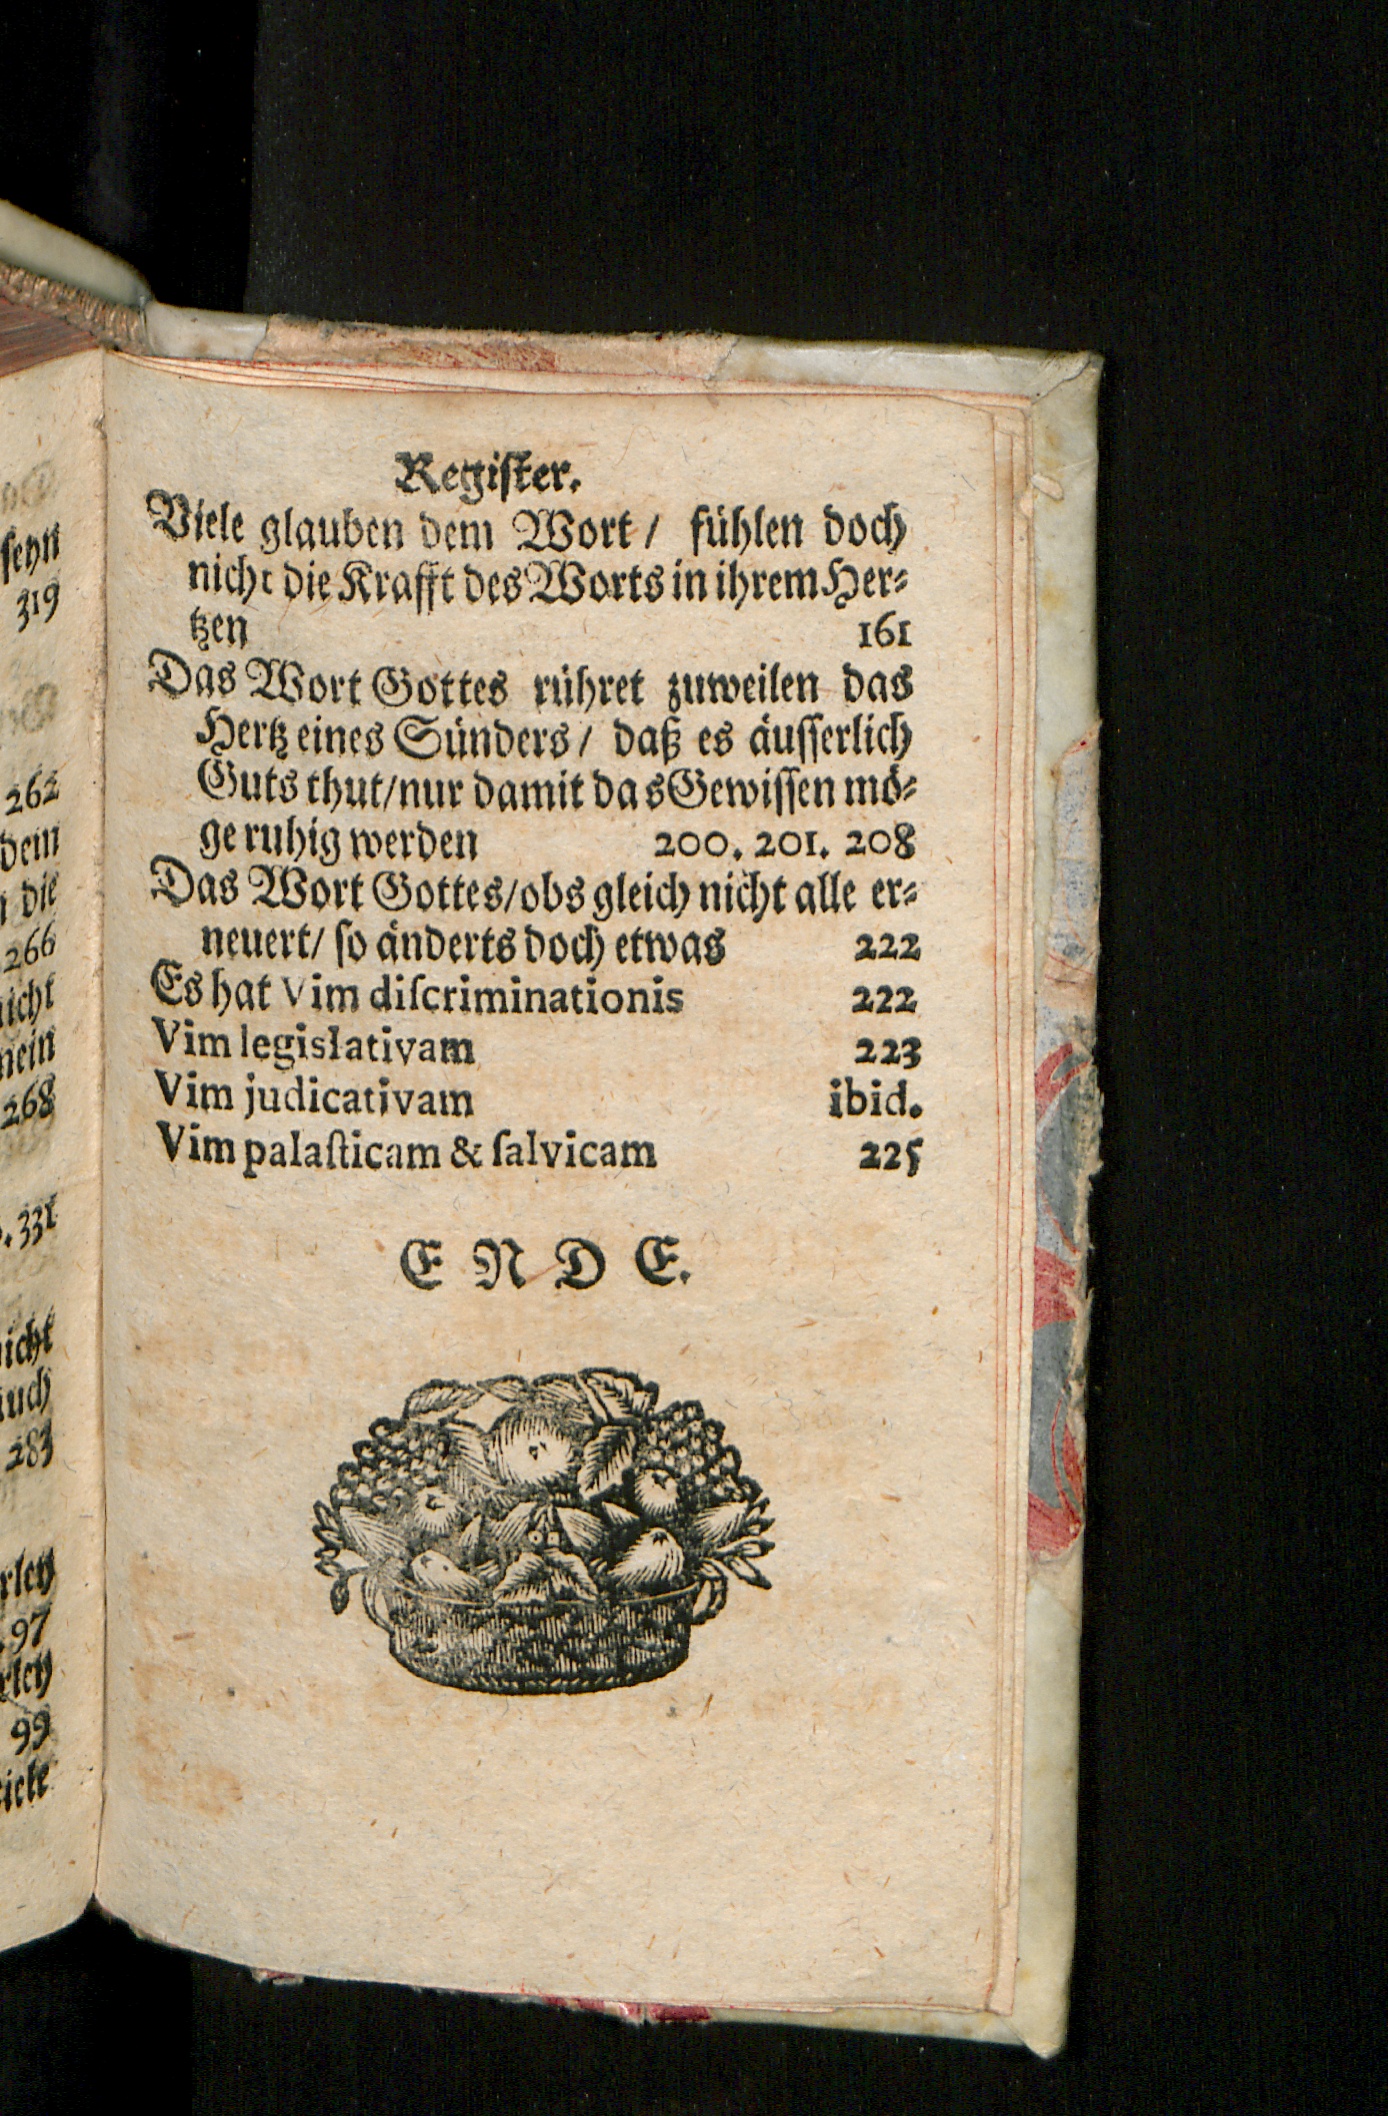 Regiſter.
Viele glauben dem Wort / fühlen doch
nicht die Krafft des Worts in ihrem Her⸗
tzen 161
Das Wort Gottes rühret zuweilen das
Hertz eines Sünders / daß es äuſſerlich
Guts thut/nur damit das Gewiſſen mö⸗
ge ruhig werden 200. 201. 208
Das Wort Gottes/obs gleich nicht alle er⸗
neuert/ ſo änderts doch etwas 222
Es hat Vim diſcriminationis 222
Vim legislativam 223
Vim judicativam ibid.
Vim palaſticam & ſalvicam 225
E N D E.
ſeyn
319
262
dem
die
266
268
331
283
97
99